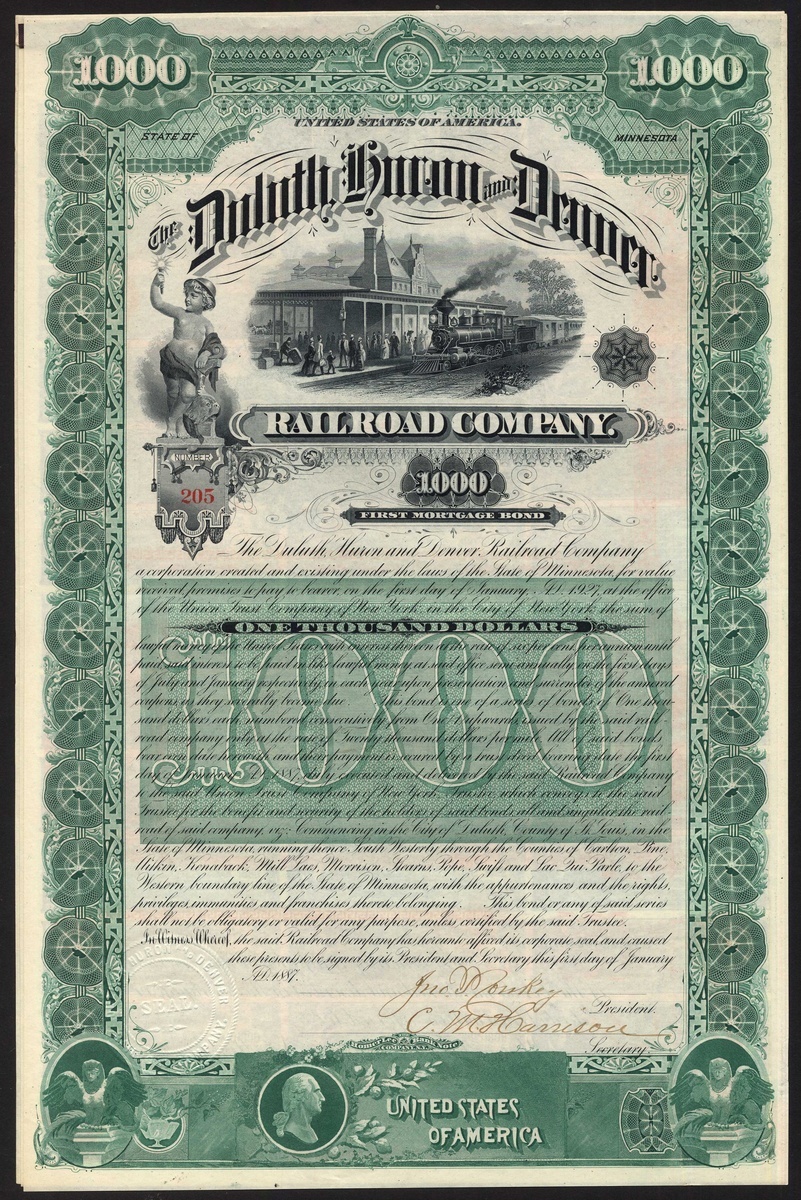 1000 1000
UNITED STATES OF AMERICA.
STATE OF MINNESOTA
The Duluth, Huron and Denver
RAILROAD COMPANY.
NUMBER
205
1000
FIRST MORTGAGE BOND
The Duluth, Huron and Denver Railroad Company
a corporation created and existing under the laws of the State of Minnesota, for value
received promises to pay to bearer, on the first day of January, A.D. 1927, at the office
of the Union Trust Company of New York, in the City of New York, the sum of
ONE THOUSAND DOLLARS
lawful money of the United States with interest thereon at the rate of six per cent. per annum until
paid said interest to be paid in like lawful money, at said office semi-annually, on the first days
of July and January respectively, in each year, upon presentation and surrender of the annexed
coupons, as they severally become due. This bond is one of a series of bonds of One thou-
sand dollars each numbered consecutively from One upward issued by the said rail-
road company only at the rate of Twenty thousand dollars per mile. All of said bonds
bear date and the payment is secured by a trust deed bearing date the first
day of January, A.D. 1887, duly executed and delivered by the said Railroad Company
to the said Union Trust Company of New York, Trustee, which conveys to the said
Trustee for the benefit and security of the holders of said bonds, all and singular the rail-
road of said company, viz: Commencing in the City of Duluth, County of St. Louis, in the
State of Minnesota, running thence South Westerly through the Counties of Carlton, Pine,
Aitken, Kanaback, Mill Lacs, Morrison, Stearns, Pope, Swift and Lac Qui Parle, to the
Western boundary line of the State of Minnesota, with the appurtenances and the rights,
privileges, immunities and franchises thereto belonging. This bond or any of said series
shall not be obligatory or valid for any purpose, unless certified by the said Trustee.
In Witness Whereof, the said Railroad Company has hereunto affixed its corporate seal, and caused
these presents to be signed by its President and Secretary this first day of January
A.D. 1887.
President.
C. M. Harrison
Secretary.
HURON & DENVER
SEAL
Homer Lee Bank Note
COMPANY, N.Y.
UNITED STATES
OF AMERICA